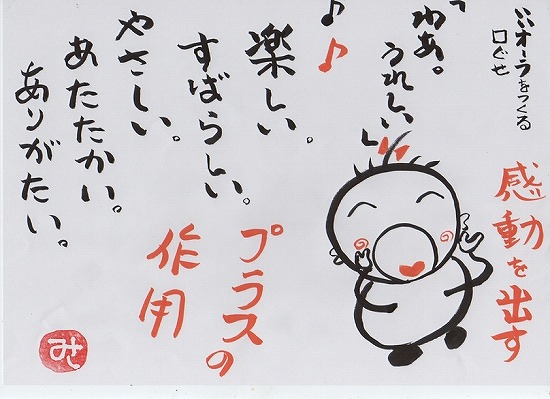 いいオーラをつくる
口ぐせ
感動を出す
「わあ。
うれしい」
楽しい。
すばらしい。
やさしい。
あたたかい。
ありがたい。
プラスの
作用
み